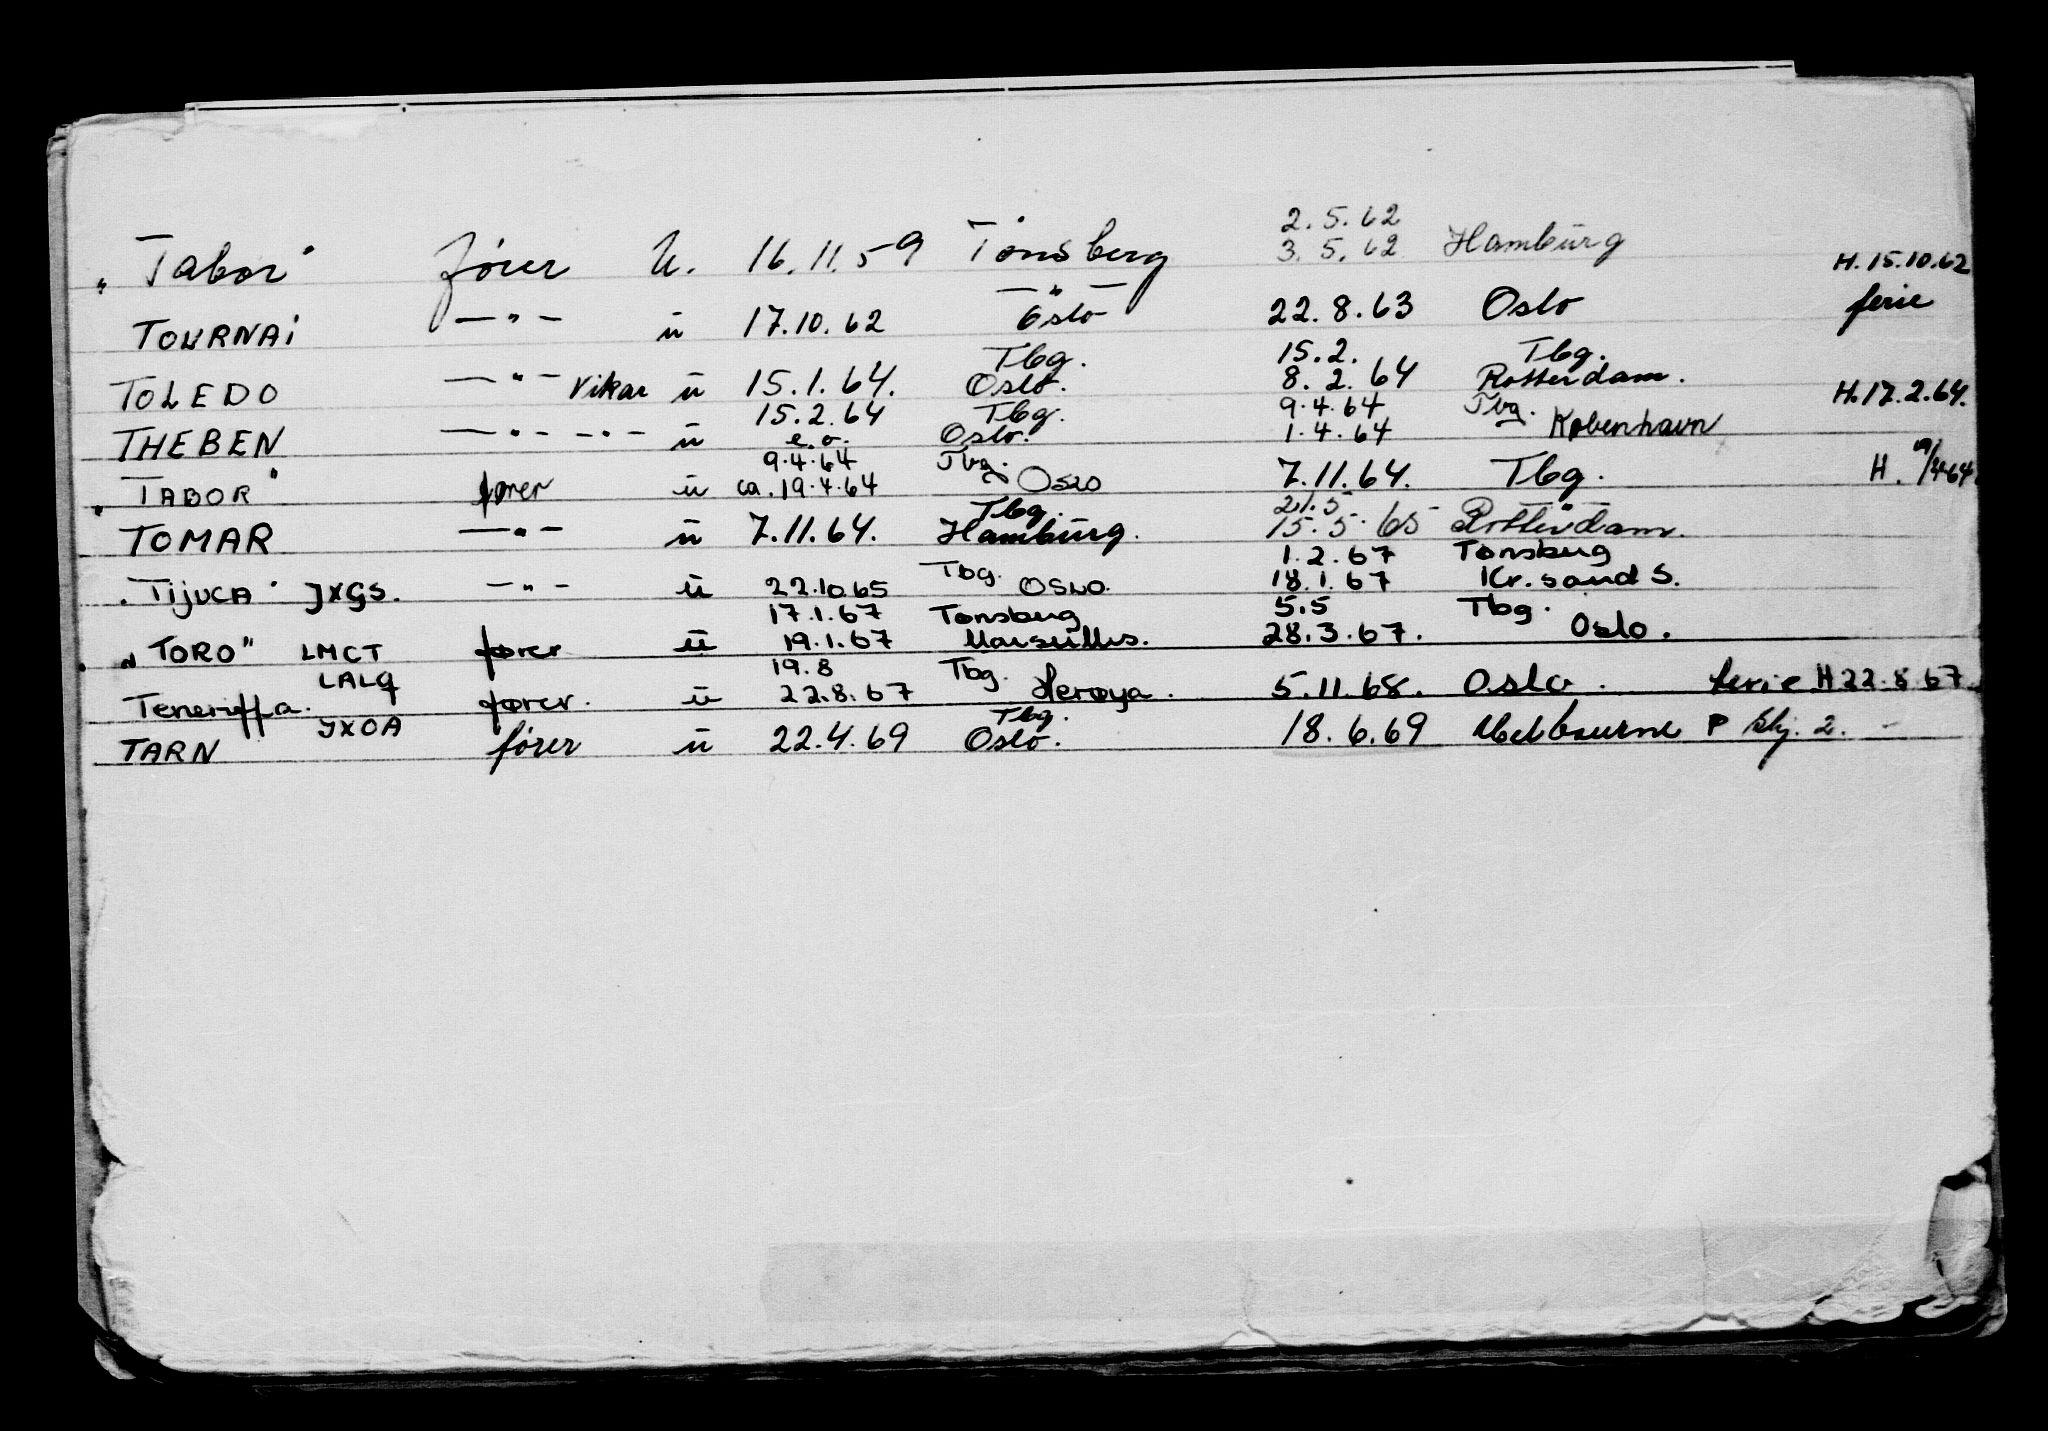 2.5.62
"Tabor" fører u. 16.11.59 Tønsberg 3.5.62 Hamburg H. 15.10.62
— " —
TOURNAi — " — u 17.10.62 Oslo 22.8.63 Oslo ferie
Tbg. 15.2. Tbg.
TOLEDO — " — Vikar u 15.1.64. Oslo. 8.2.64 Rotterdam. H.17.2.64.
15.2.64 Tbg. 9.4.64 Tbg.
THEBEN — " — — " — u e.o. Oslo. 1.4.64 København
9.4.64 Tbg.
"TABOR" fører u ca. 19.4.64 Oslo 7.11.64. Tbg. H.
Tbg. 21.5
TOMAR — " — u 7.11.64. Hamburg. 15.5.65 Rotterdam.
Tbg. 1.2.67 Tønsberg
"Tijuca" JXGS. — " — u 22.10.65 OSLO. 18.1.67 Kr.sand S.
17.1.67 Tønsberg 5.5 Tbg.
"TORO" LMCT fører u 19.1.67 Marseilles. 28.3.67. Oslo.
LALQ 19.8 Tbg.
Teneriffa. fører. u 22.8.67 Herøya. 5.11.68. Oslo. ferie H 22.8.67
JXOA Tbg.
TARN fører u 22.4.69 Oslo. 18.6.69 Melbourne P Skj. 2.